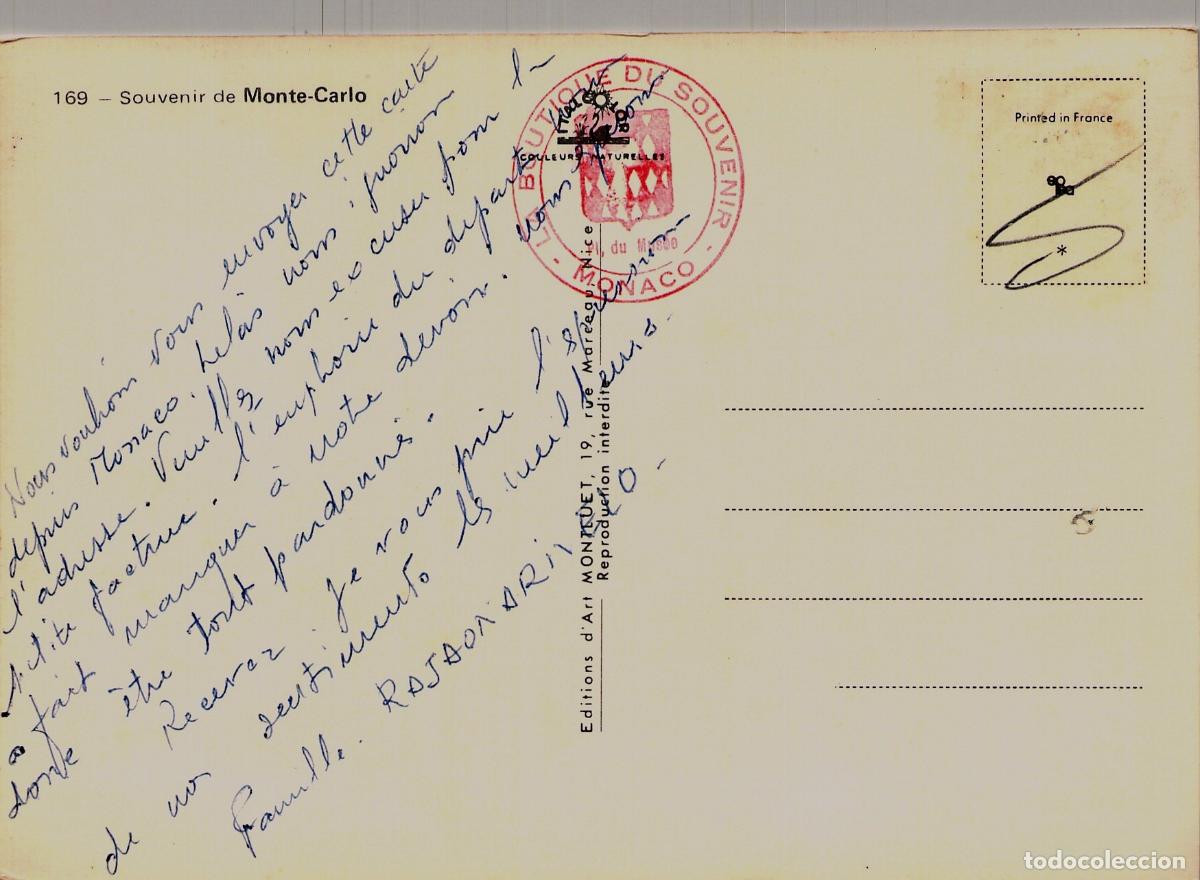 169 – Souvenir de Monte-Carlo
Nous voulions vous envoyer cette carte
depuis Monaco. hélas nous ignorions
l'adresse. Veuillez nous excuser pour la
petite facture. l'euphorie du départ nous
a fait manquer à notre devoir. nous espérons
donc être tout pardonnés.
Recevez je vous prie l'expression
de nos sentiments les meilleurs.
Famille.
LA BOUTIQUE DU SOUVENIR
Pl. du Musée
- MONACO -
COULEURS NATURELLES
Editions d'Art MONTLUET, 19, rue Marceau, Nice
Reproduction interdite
Printed in France
*
todocoleccion